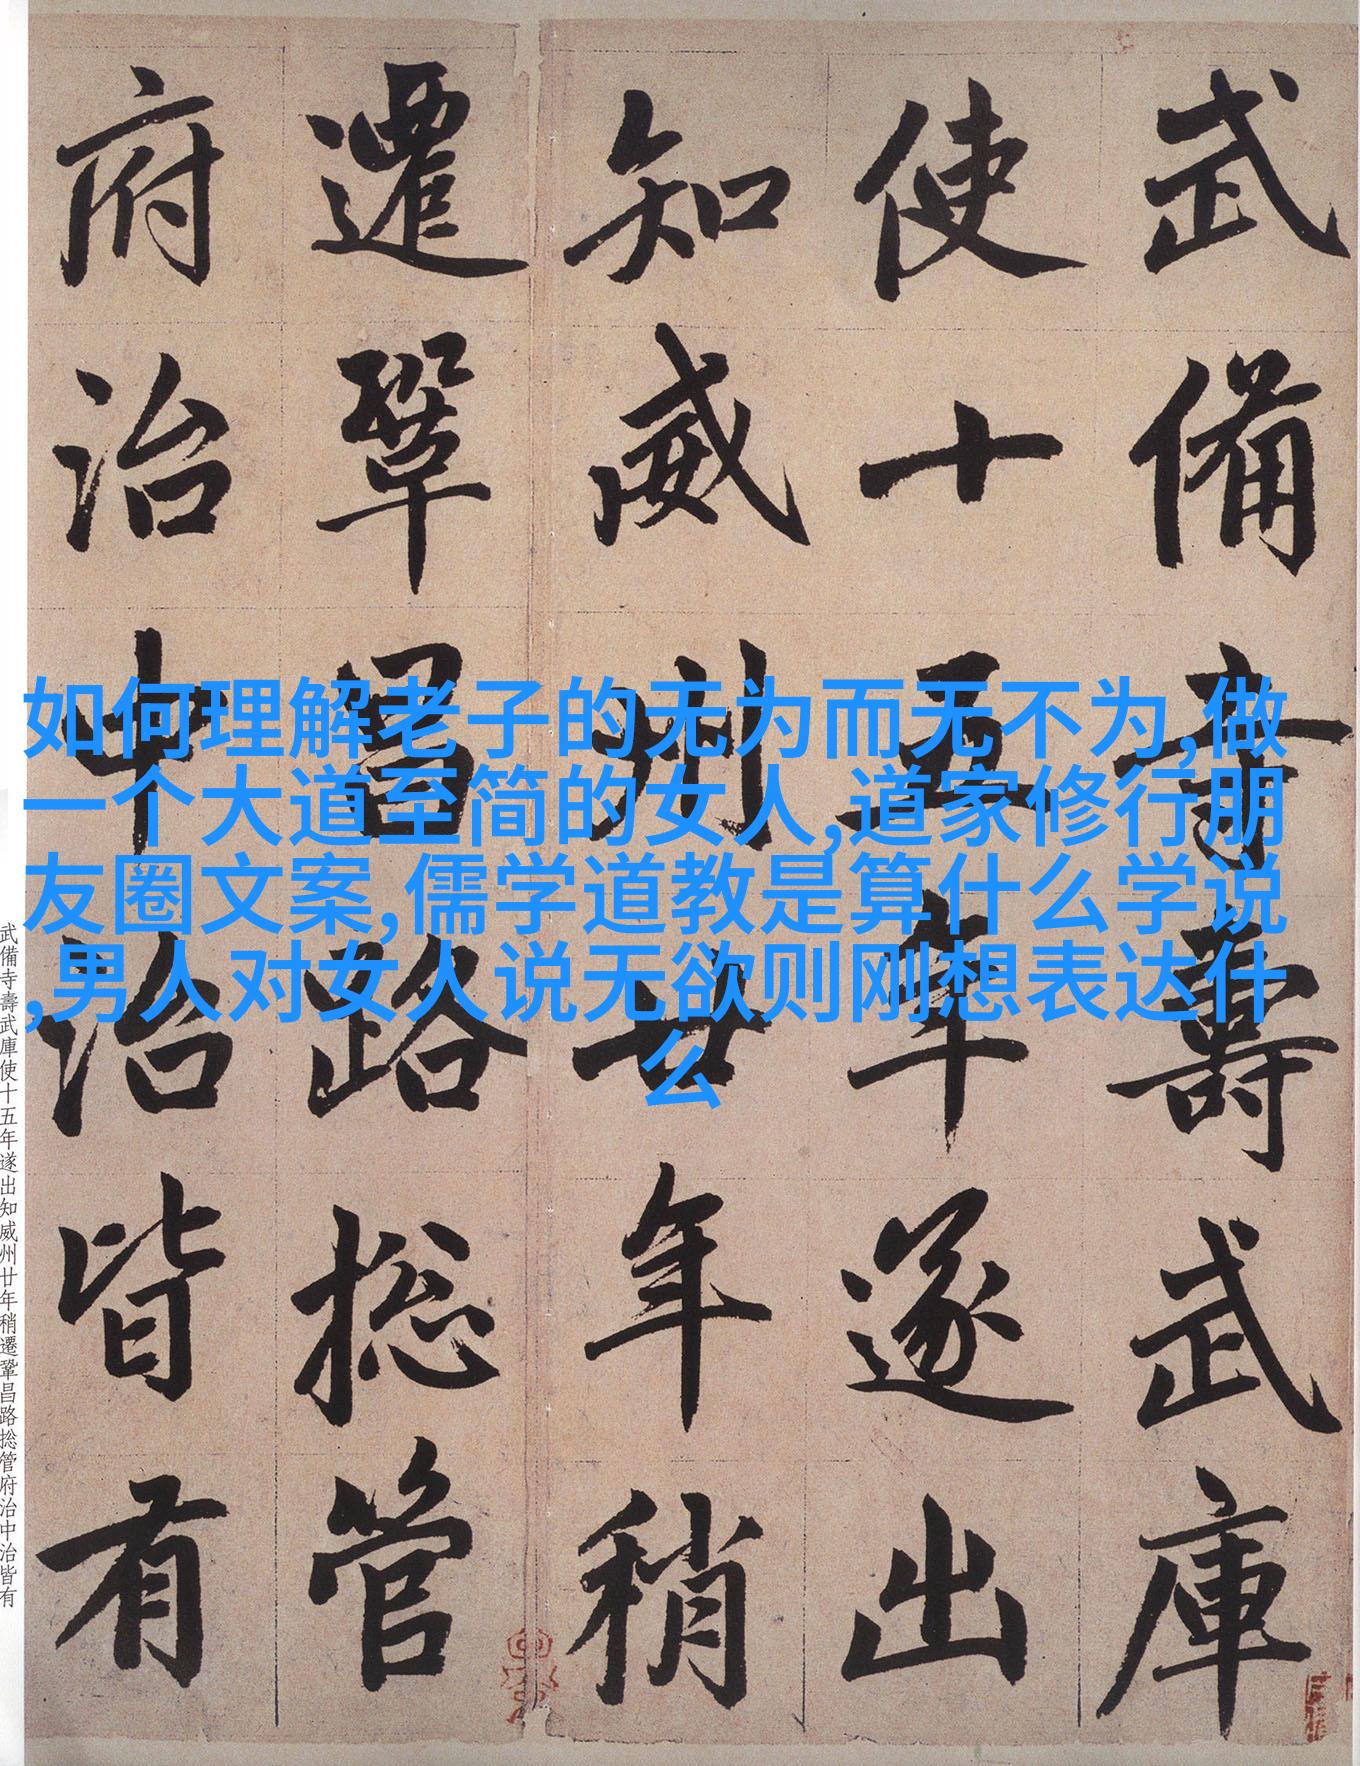 武備寺壽武庫
使十五年遂出
知威州廿年稍
遷鞏昌路捴管
府治中治皆有
如何理解老子的无为而无不为,做
一个大道至简的女人,道家修行朋
友圈文案,儒学道教是算什么学说
,男人对女人说无欲则刚想表达什
么
武備寺壽武庫使十五年遂出知威州廿年稍遷鞏昌路捴管府治中治皆有